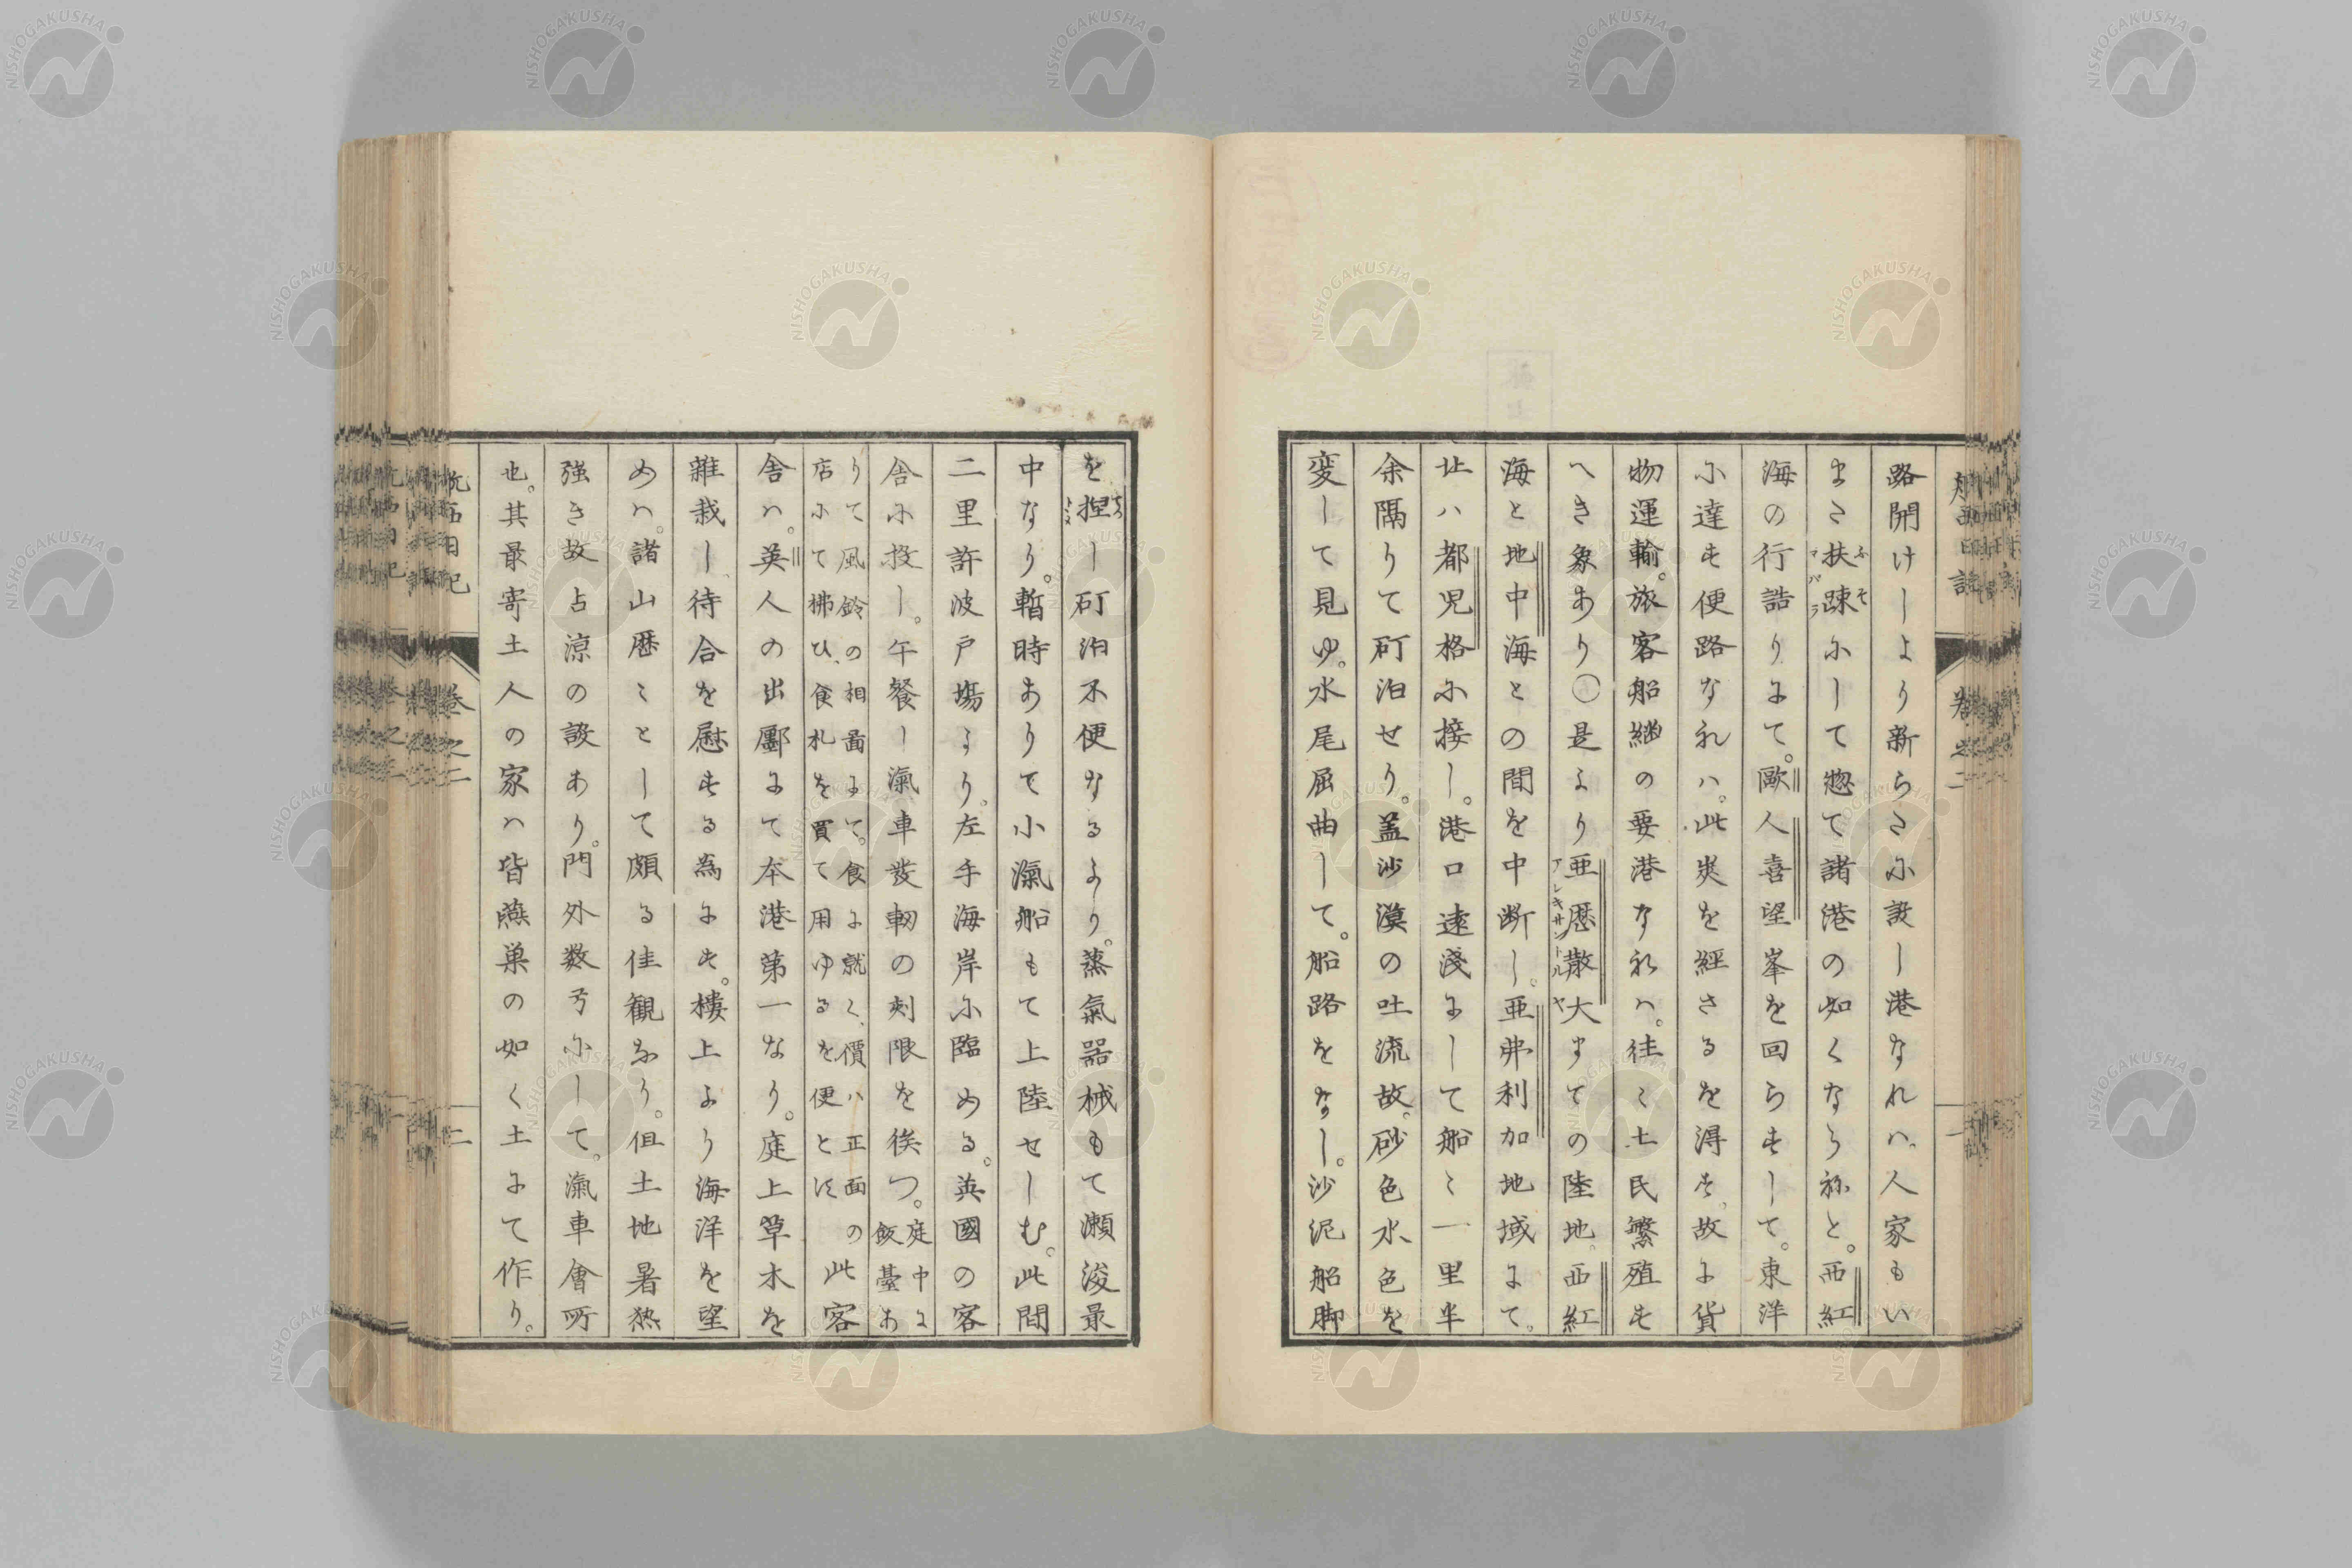 路開けしより新らさに設し港なれハ。人家もい
まさ扶踈にして惣て諸港の如くならねと。西紅
海の行詰りにて。歐人喜望峯を回らすして。東洋
に達す便路なれハ。此炎を經さるを得す。故に貨
物運輸。旅客船繼の要港なれハ。往〻土民繁殖す
へき象あり〇是より亜歴散大まての陸地。西紅
海と地中海との間を中断し。亜弗利加地域にて。
北ハ都児格に接し。港口遠淺にして船〻一里半
余隔りて矴泊せり。蓋沙漠の吐流故。砂色水色を
変して見ゆ。水尾屈曲して。船路をなし。沙泥船脚
を捏し矴泊不便なるより。蒸氣器械もて瀬浚最
中なり。暫時ありて小滊船もて上陸せしむ。此間
二里許波戸塲より。左手海岸に臨める。英國の客
舎に投し。午餐し滊車發軔の刻限を俟つ。庭中に飯臺あ
りて風鈴の相圖にて。食に就く、價ハ正面の店にて拂ひ、食札を買て用ゆるを便とす 此客
舎ハ。英人の出鄽にて本港第一なり。庭上草木を
雜栽し、待合を慰する為にす。樓上より海洋を望
めハ。諸山歴〻として頗る佳観なり。但土地暑熱
強き故占涼の設あり。門外数弓にして。滊車會所
也。其最寄土人の家ハ皆燕巣の如く土にて作り。